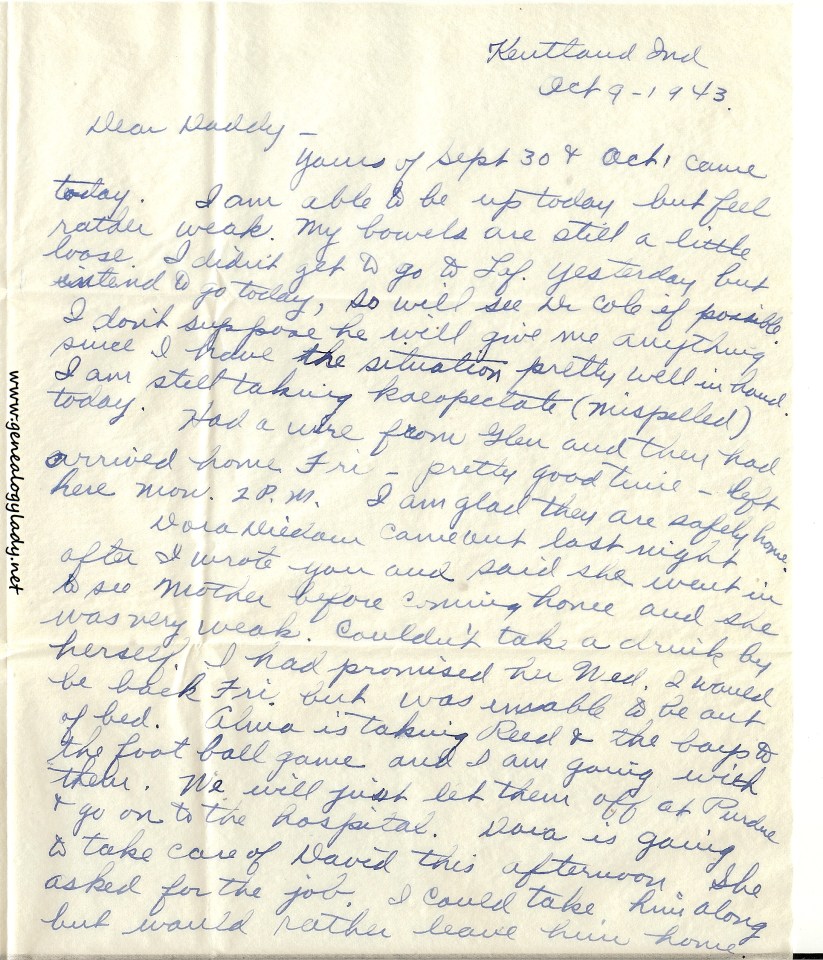 Kentland Ind
Oct 9-1943.
Dear Daddy -
Yours of Sept 30 & Oct 1 came
today. I am able to be up today but feel
rather weak. My bowels are still a little
loose. I didn't get to go to Laf. yesterday but
intend to go today, so will see Dr Cole if possible.
I don't suppose he will give me anything
since I have the situation pretty well in hand.
I am still taking kaeopectate (mispelled)
today.
Had a wire from Glen and they had
arrived home Fri - pretty good time - left
here Mon. 2 P.M. I am glad they are safely home.
Dora came out last night
after I wrote you and said she went in
to see Mother before coming home and she
was very weak. Couldn't take a drink by
herself. I had promised her Wed. I would
be back Fri. but was unable to be out
of bed. Alma is taking Reed & the boys to
the foot ball game and I am going with
them. We will just let them off at Purdue
& go on to the hospital. Dora is going
to take care of David this afternoon. She
asked for the job. I could take him along
but would rather leave him home.
www.genealogylady.net